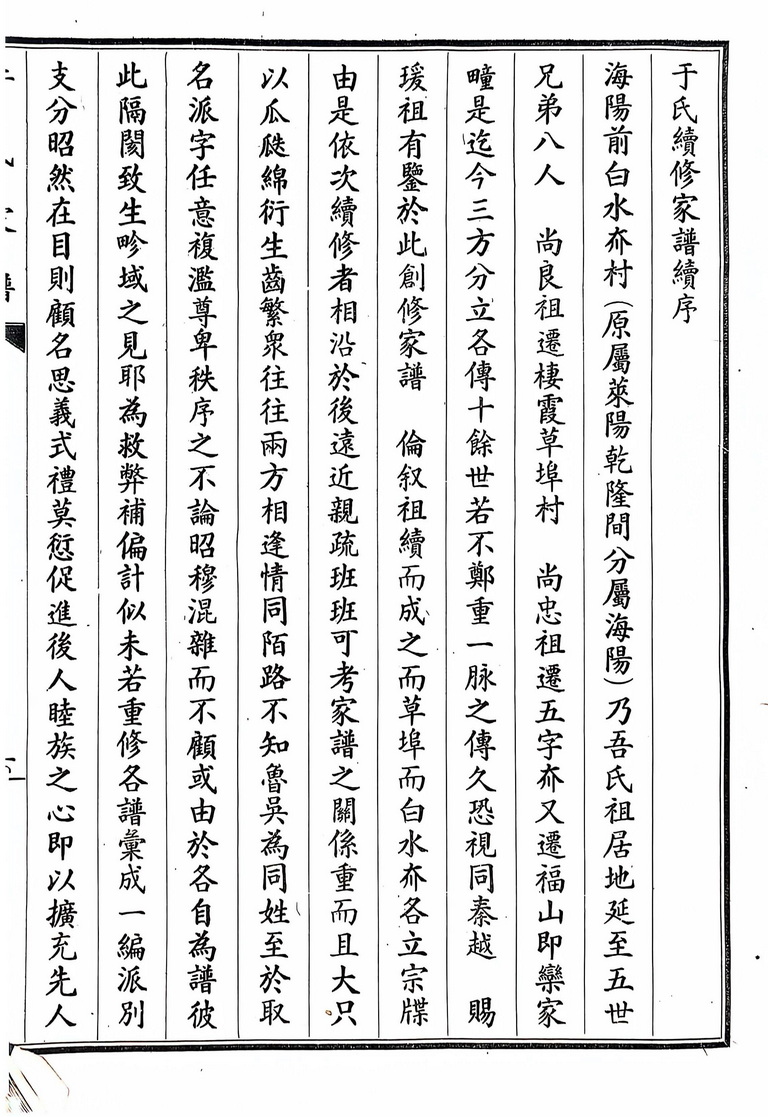 于氏續修家譜續序
海陽前白水夼村(原屬萊陽乾隆間分屬海陽)乃吾氏祖居地延至五世
兄弟八人　尚良祖遷棲霞草埠村　尚忠祖遷五字夼又遷福山即欒家
疃是迄今三方分立各傳十餘世若不鄭重一脉之傳久恐視同秦越　賜
瑗祖有鑒於此創修家譜　倫叙祖續而成之而草埠而白水夼各立宗牒
由是依次續修者相沿於後遠近親疏班班可考家譜之關係重而且大只
以瓜瓞綿衍生齒繁衆往往兩方相逢情同陌路不知魯吳為同姓至於取
名派字任意複濫尊卑秩序之不論昭穆混雜而不顧或由於各自為譜彼
此隔閡致生畛域之見耶為救弊補偏計似未若重修各譜彙成一編派別
支分昭然在目則顧名思義式禮莫愆促進後人睦族之心即以擴充先人